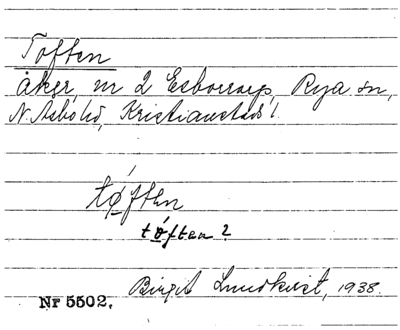 Toften
åker, nr 2 Esborrarp, Rya sn,
N. Åsbo hd, Kristianstads l.
tǿften
tǿften?
Birgit Lundkvist, 1938.
Nr 5502.